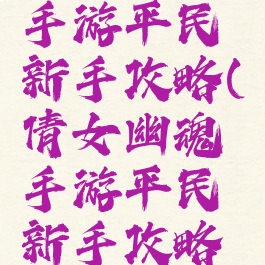 手游平民
新手攻略(
倩女幽魂
手游平民
新手攻略